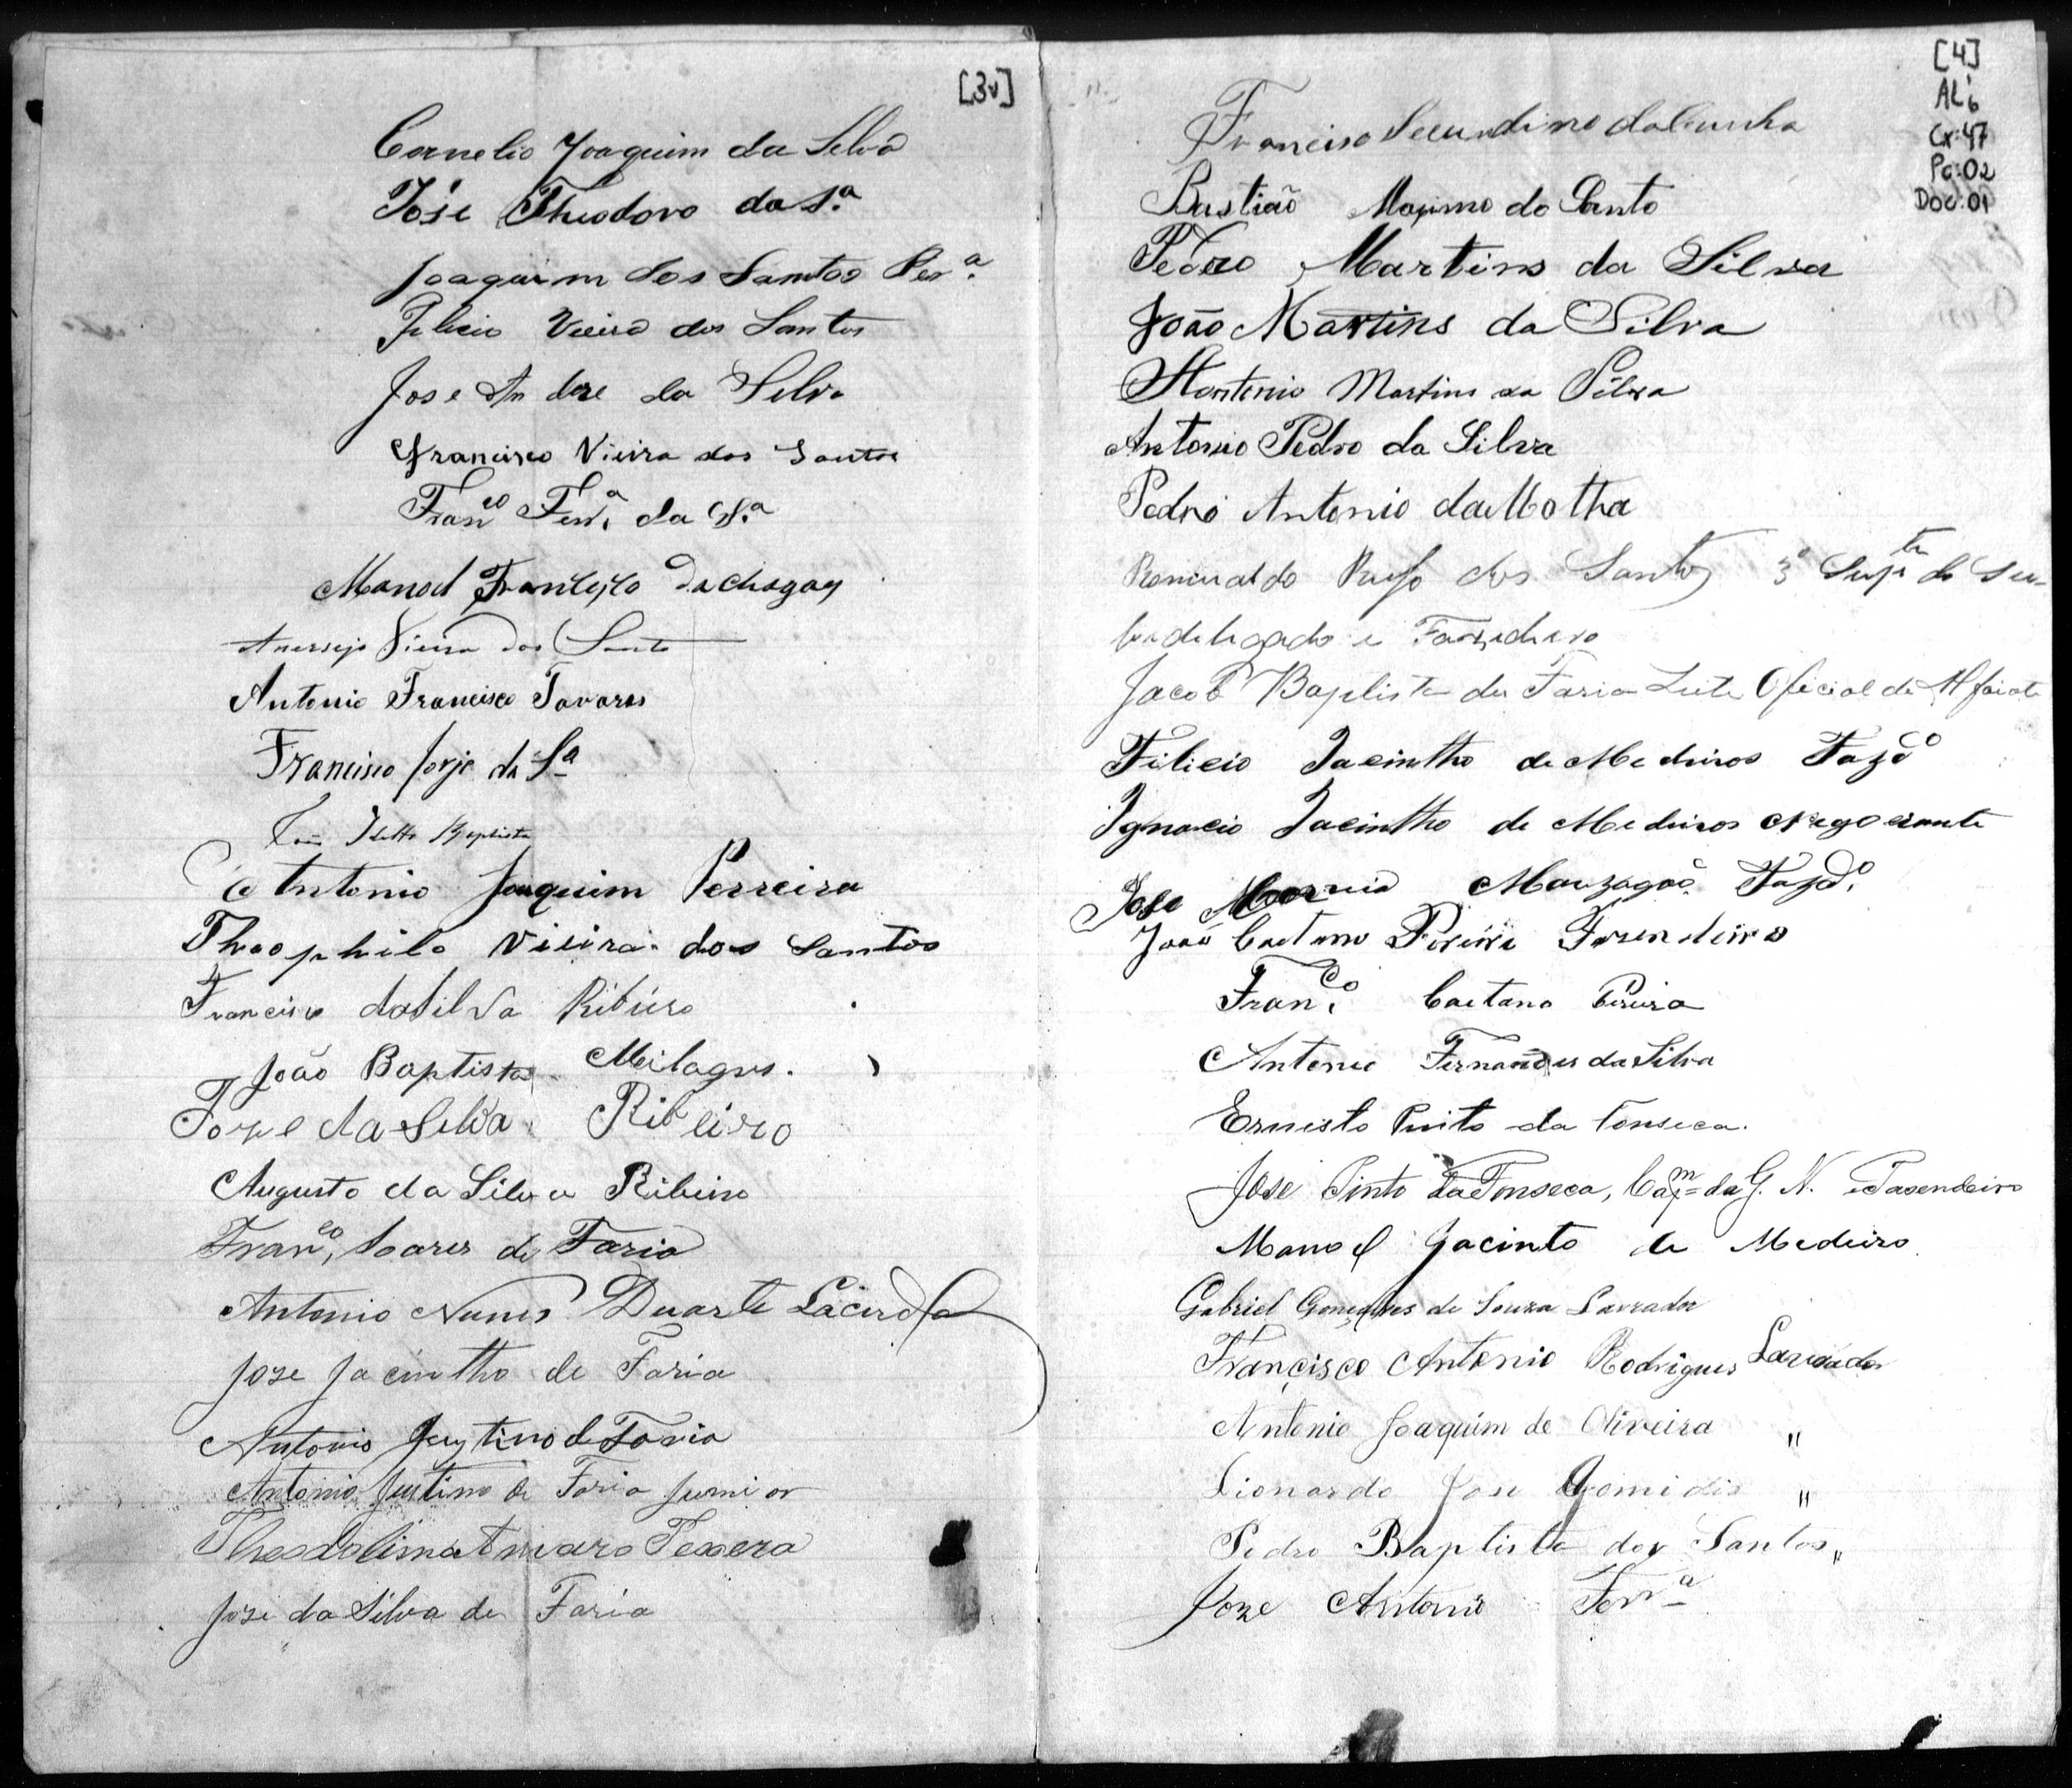 [3v]
Cornelio Joaquim da Silva
José Theodoro da S.ª
Joaquim dos Santos Per.ª
Felicio Vieira dos Santos
Jose Andre da Silva
Francisco Vieira dos Santos
Fran.co Ferr.ª da S.ª
Manoel Francisco da chagas
Vieira dos Santo
Antonio Francisco Tavares
Francisco Jorje da Sª
Baptista
Antonio Joaquim Perreira
Theophilo Vieira dos Santos
Francisco da Silva Ribeiro
João Baptista Milagres.
Joze da Silva Ribeiro
Augusto da Silva Ribeiro
Fran.co Soares de Faria
Antonio Nunes Duarte Lacerda
Joze Jacintho de Faria
Antonio Justino de Faria
Antonio Justino de Faria Junior
Theodolima Amaro Texera
Joze da Silva de Faria
[4]
AL6
Cx:47
Pc:02
Doc:01
Francisco Secundino da Cunha
Bastião Maximo do Santo
Pedro Martins da Silva
João Martins da Silva
Antonio Martins da Silva
Antonio Pedro da Silva
Pedro Antonio da Motha
Romualdo Rufo dos Santos 3º Supte do Su-
badelegado e Fazendeiro
Jacob Baptista de Faria Leite Oficial de Alfaiate
Filicio Jacintho de Medeiros Fazdº
Ignacio Jacintho de Medeiros Negociante
Jose Maria Mauzagão Fazdº
João Caetano Pereira Fazendeiro
Fran.co Caetano Pereira
Antonio Fernandes da Silva
Ernesto Pinto da Fonseca.
Jose Pinto da Fonseca, Capm da G. N. e Fasendeiro
Manoel Jacinto de Medeiro
Gabriel Gonçalves de Souza Lavrador
Francisco Antonio Rodrigues Lavrador
Antonio Joaquim de Oliveira "
Lionardo Jose Gomides "
Pedro Baptista dos Santos "
Joze Antonio Ferrª